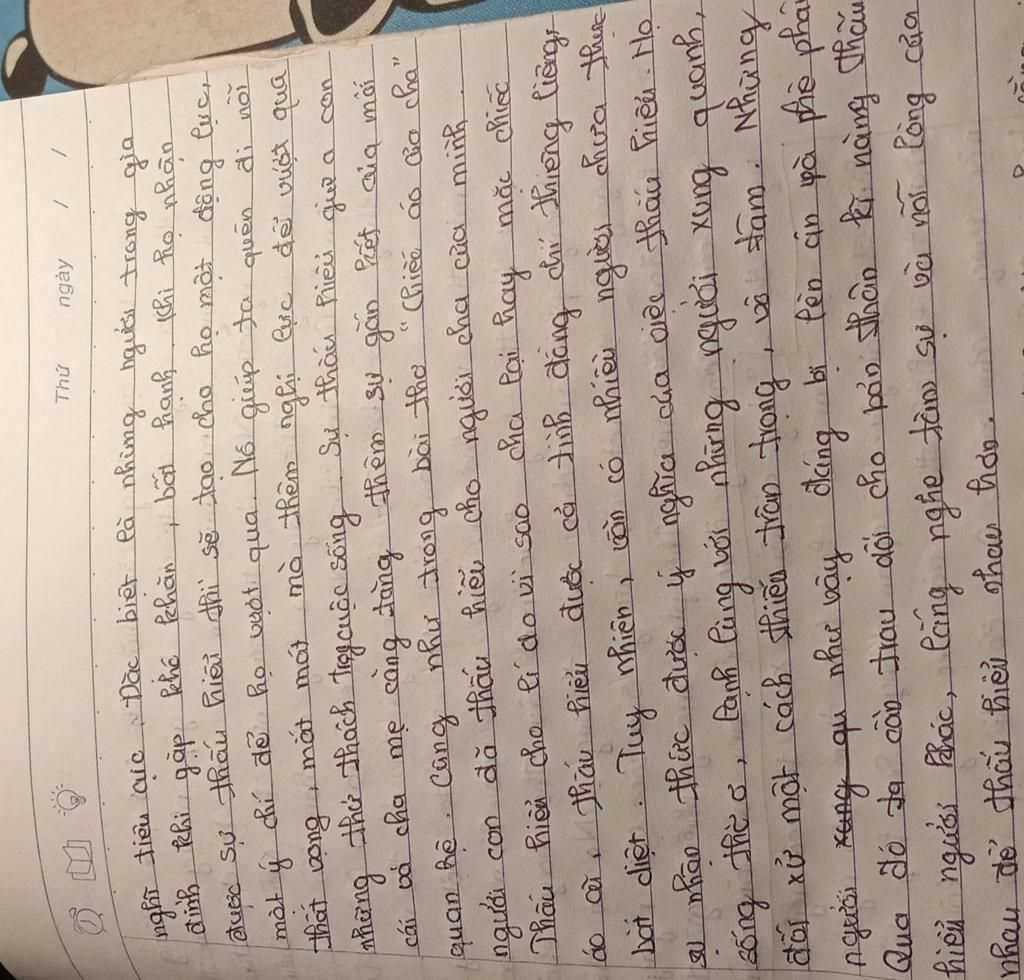 Thứ ngày / /
nghĩ tiêu cực. Đặc biệt là những người trong gia
đình khi gặp khó khăn, bất hạnh, khi họ nhận
được sự thấu hiểu thì sẽ tạo cho họ một động lực,
một ý chí để họ vượt qua. Nó giúp ta quên đi nỗi
thất vọng, mất mát mà thêm nghị lực để vượt qua
những thử thách trog cuộc sống. Sự thấu hiểu giữa con
cái và cha mẹ càng tăng thêm sự gắn kết của mối
quan hệ. Cũng như trong bài thơ "Chiếc áo của cha"
người con đã thấu hiểu cho người cha của mình.
Thấu hiểu cho lí do vì sao cha lại hay mặc chiếc
áo cũ, thấu hiểu được cả tình đồng chí thiêng liêng,
bất diệt. Tuy nhiên, vẫn có nhiều người chưa thực
sự nhận thức được ý nghĩa của việc thấu hiểu. Họ
sống thờ ơ, lạnh lùng với những người xung quanh,
đối xử một cách thiếu trân trọng, vô tâm. Những
người như vậy đáng bị lên án và phê phá
Qua đó ta cần trau dồi cho bản thân kĩ năng thấu
hiểu người khác, lắng nghe tâm sự và nỗi lòng của
nhau để thấu hiểu nhau hơn.